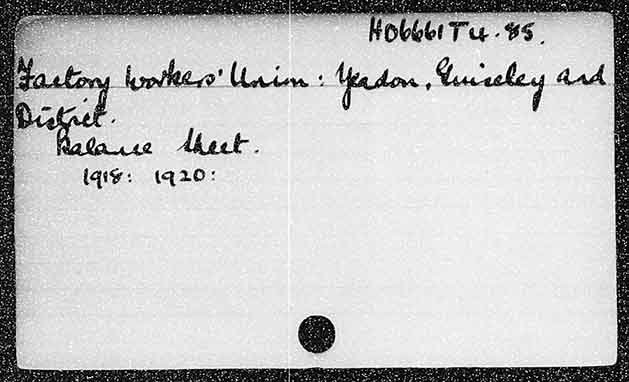 HD6661 T4.85.
Factory Workers' Union: Yeadon, Guiseley and
District.
Balance Sheet.
1918: 1920: